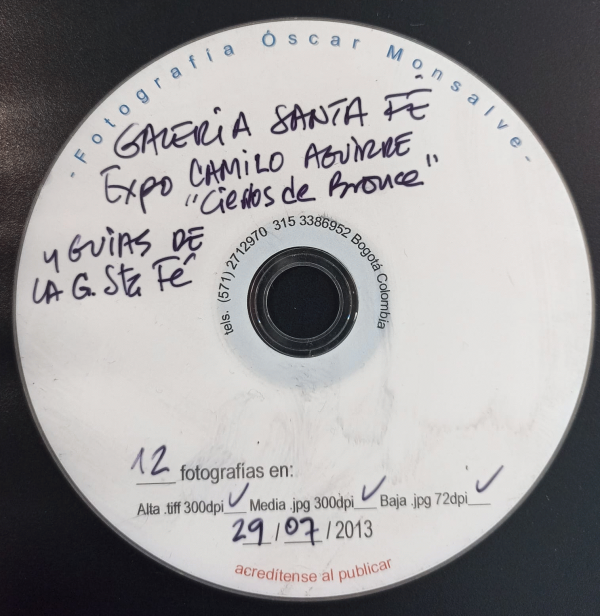 - Fotografía Óscar Monsalve -
GALERIA SANTA FÉ
Expo CAMILO AGUIRRE
"Cielos de Bronce"
y GUIAS DE
LA G. Sta. Fé
tels. (571) 2712970 315 3386952 Bogotá Colombia
12 fotografías en:
Alta .tiff 300dpi ✓ Media .jpg 300dpi ✓ Baja .jpg 72dpi ✓
29 / 07 / 2013
acredítense al publicar